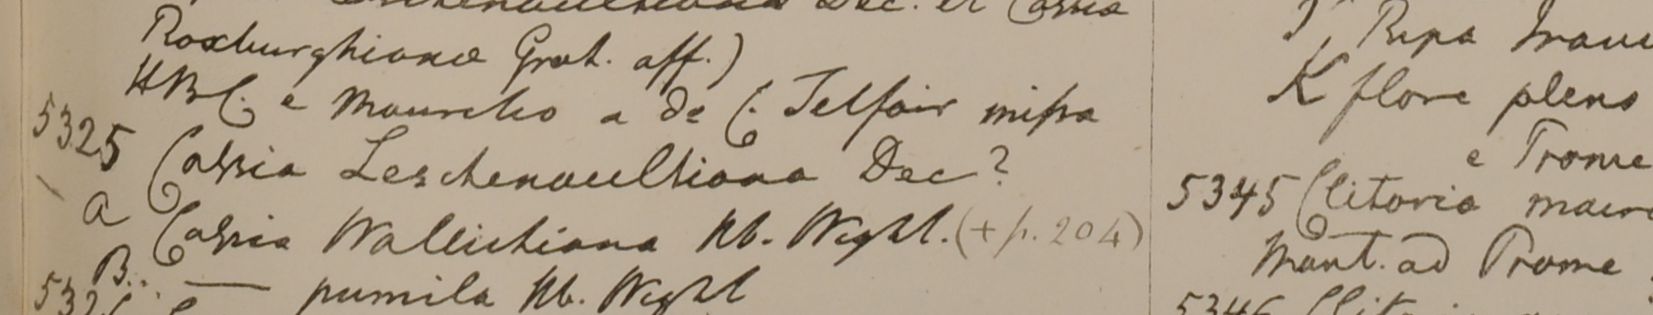 Leschenaultiana Dec. et Cassia
Roxburghiana Grah. aff.)
HBC. e Mauritio a de C. Telfair missa
5325 Cassia Leschenaultiana Dec?
a Cassia Wallichiana Hb. Wight. (+ p. 204)
B. — pumila Hb. Wight
Ripa Irawa
K flore pleno
e Prome
5345 Clitoria macro
Mont. ad Prome
5346 Clit